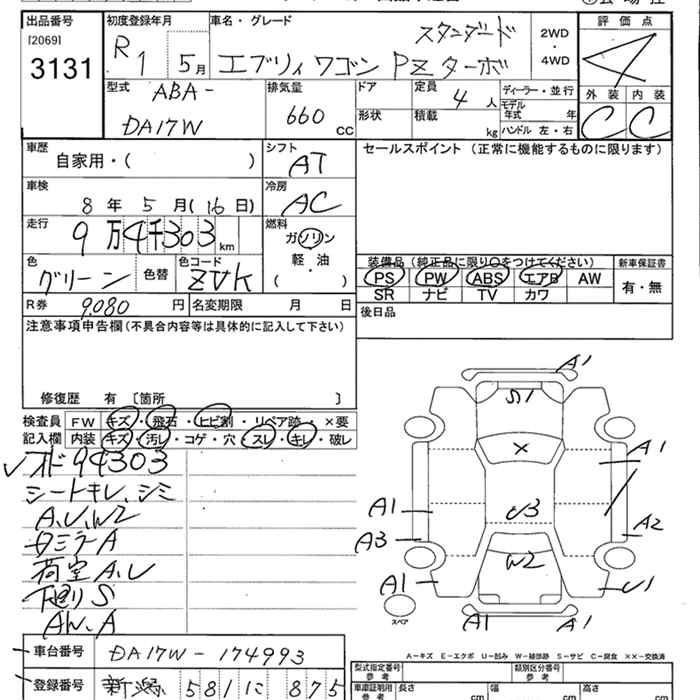 出品番号 初度登録年月 車名・グレード 評価点
[2069] スタンダード 2WD
3131 R1 5月 エブリィワゴン PZターボ ・ 4WD 4
型式 排気量 ドア 定員 4人 ディーラー・並行 外装 内装
ABA- 660 モデル年式 年 C C
DA17W CC 形状 積載 kg ハンドル 左・右
車歴 シフト セールスポイント(正常に機能するものに限ります)
自家用・( ) AT
車検 冷房
8年 5月(16日) AC
走行 燃料
9万4千303km ガソリン
軽・油
( )
色 色替 色コード 装備品(純正品に限り○をつけてください) 新車保証書
グリーン ZVK PS PW ABS エアB AW 有・無
SR ナビ TV カワ
R券 9,080円 名変期限 月 日 後日品
注意事項申告欄(不具合内容等は具体的に記入して下さい)
修復歴 有 〔箇所 〕
検査員 FW キズ・飛石・ヒビ割・リペア跡・×要
記入欄 内装 キズ・汚レ・コゲ・穴・スレ・キレ・破レ
オド94303
シートキレ、シミ
A,U,W2
タミラーA
荷室A,U
下廻りS
AW、A
A1
S1
×
A1
U3
A1
A3
A2
W2
A1
U1
A1
A1
スペア
A-キズ E-エクボ U-凹み W-補修跡 S-サビ C-腐食 ××-交換済
車台番号 DA17W-174993
型式指定番号 参考 類別区分番号 参考
登録番号 新潟 581 に 875
車庫証明用 参考 長さ cm 幅 cm 高さ cm